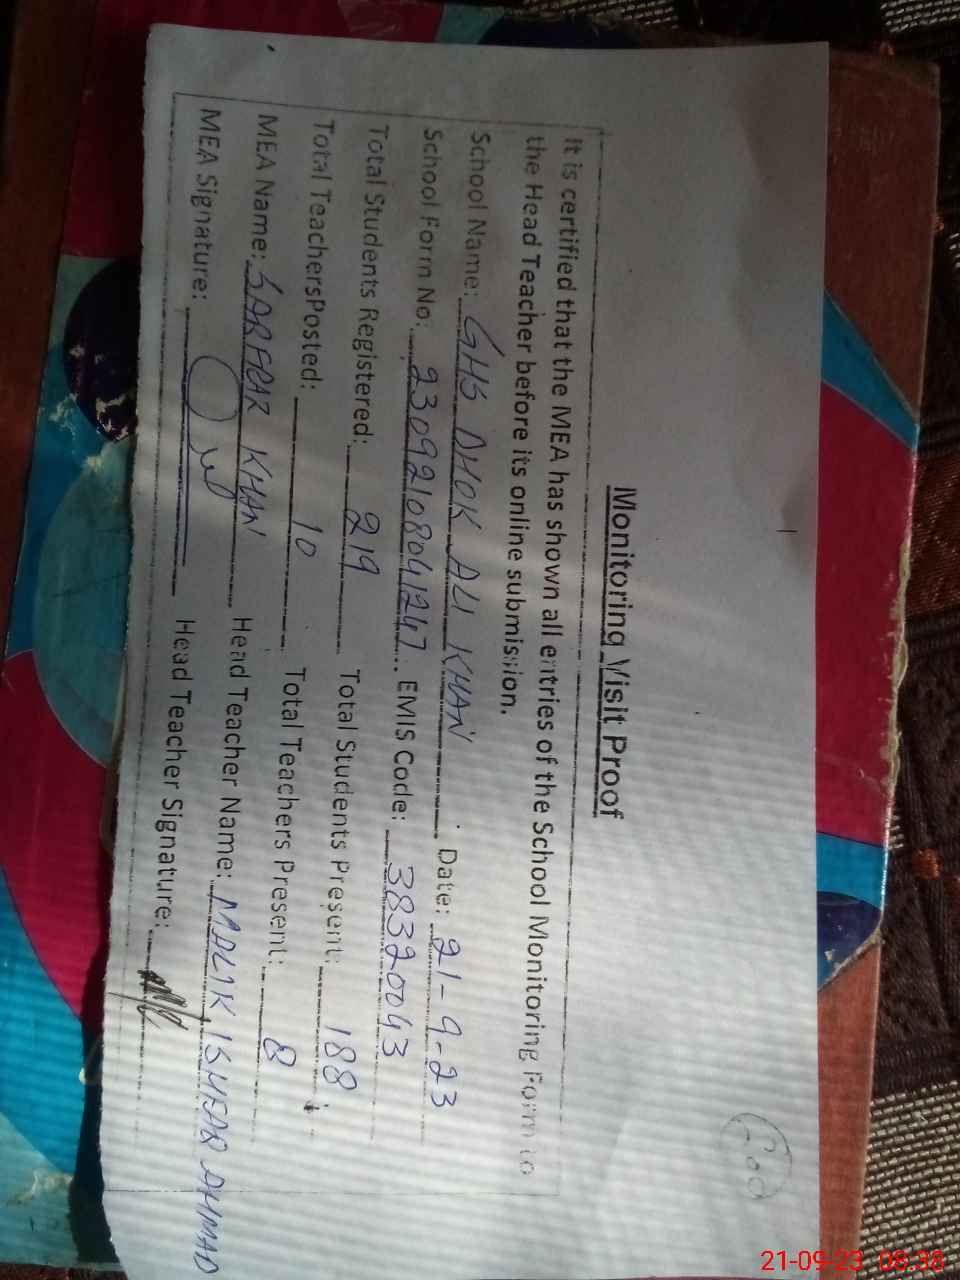 Monitoring Visit Proof
It is certified that the MEA has shown all entries of the School Monitoring Form to
the Head Teacher before its online submission.
School Name: GHS DHOK ALI KHAN Date: 21-9-23
School Form No: 23092108041247 EMIS Code: 38320043
Total Students Registered: 219 Total Students Present: 188
Total TeachersPosted: 10 Total Teachers Present: 8
MEA Name: SARFRAZ KHAN Head Teacher Name: MALIK AHMAD
MEA Signature: Head Teacher Signature:
21-09-23 08:38